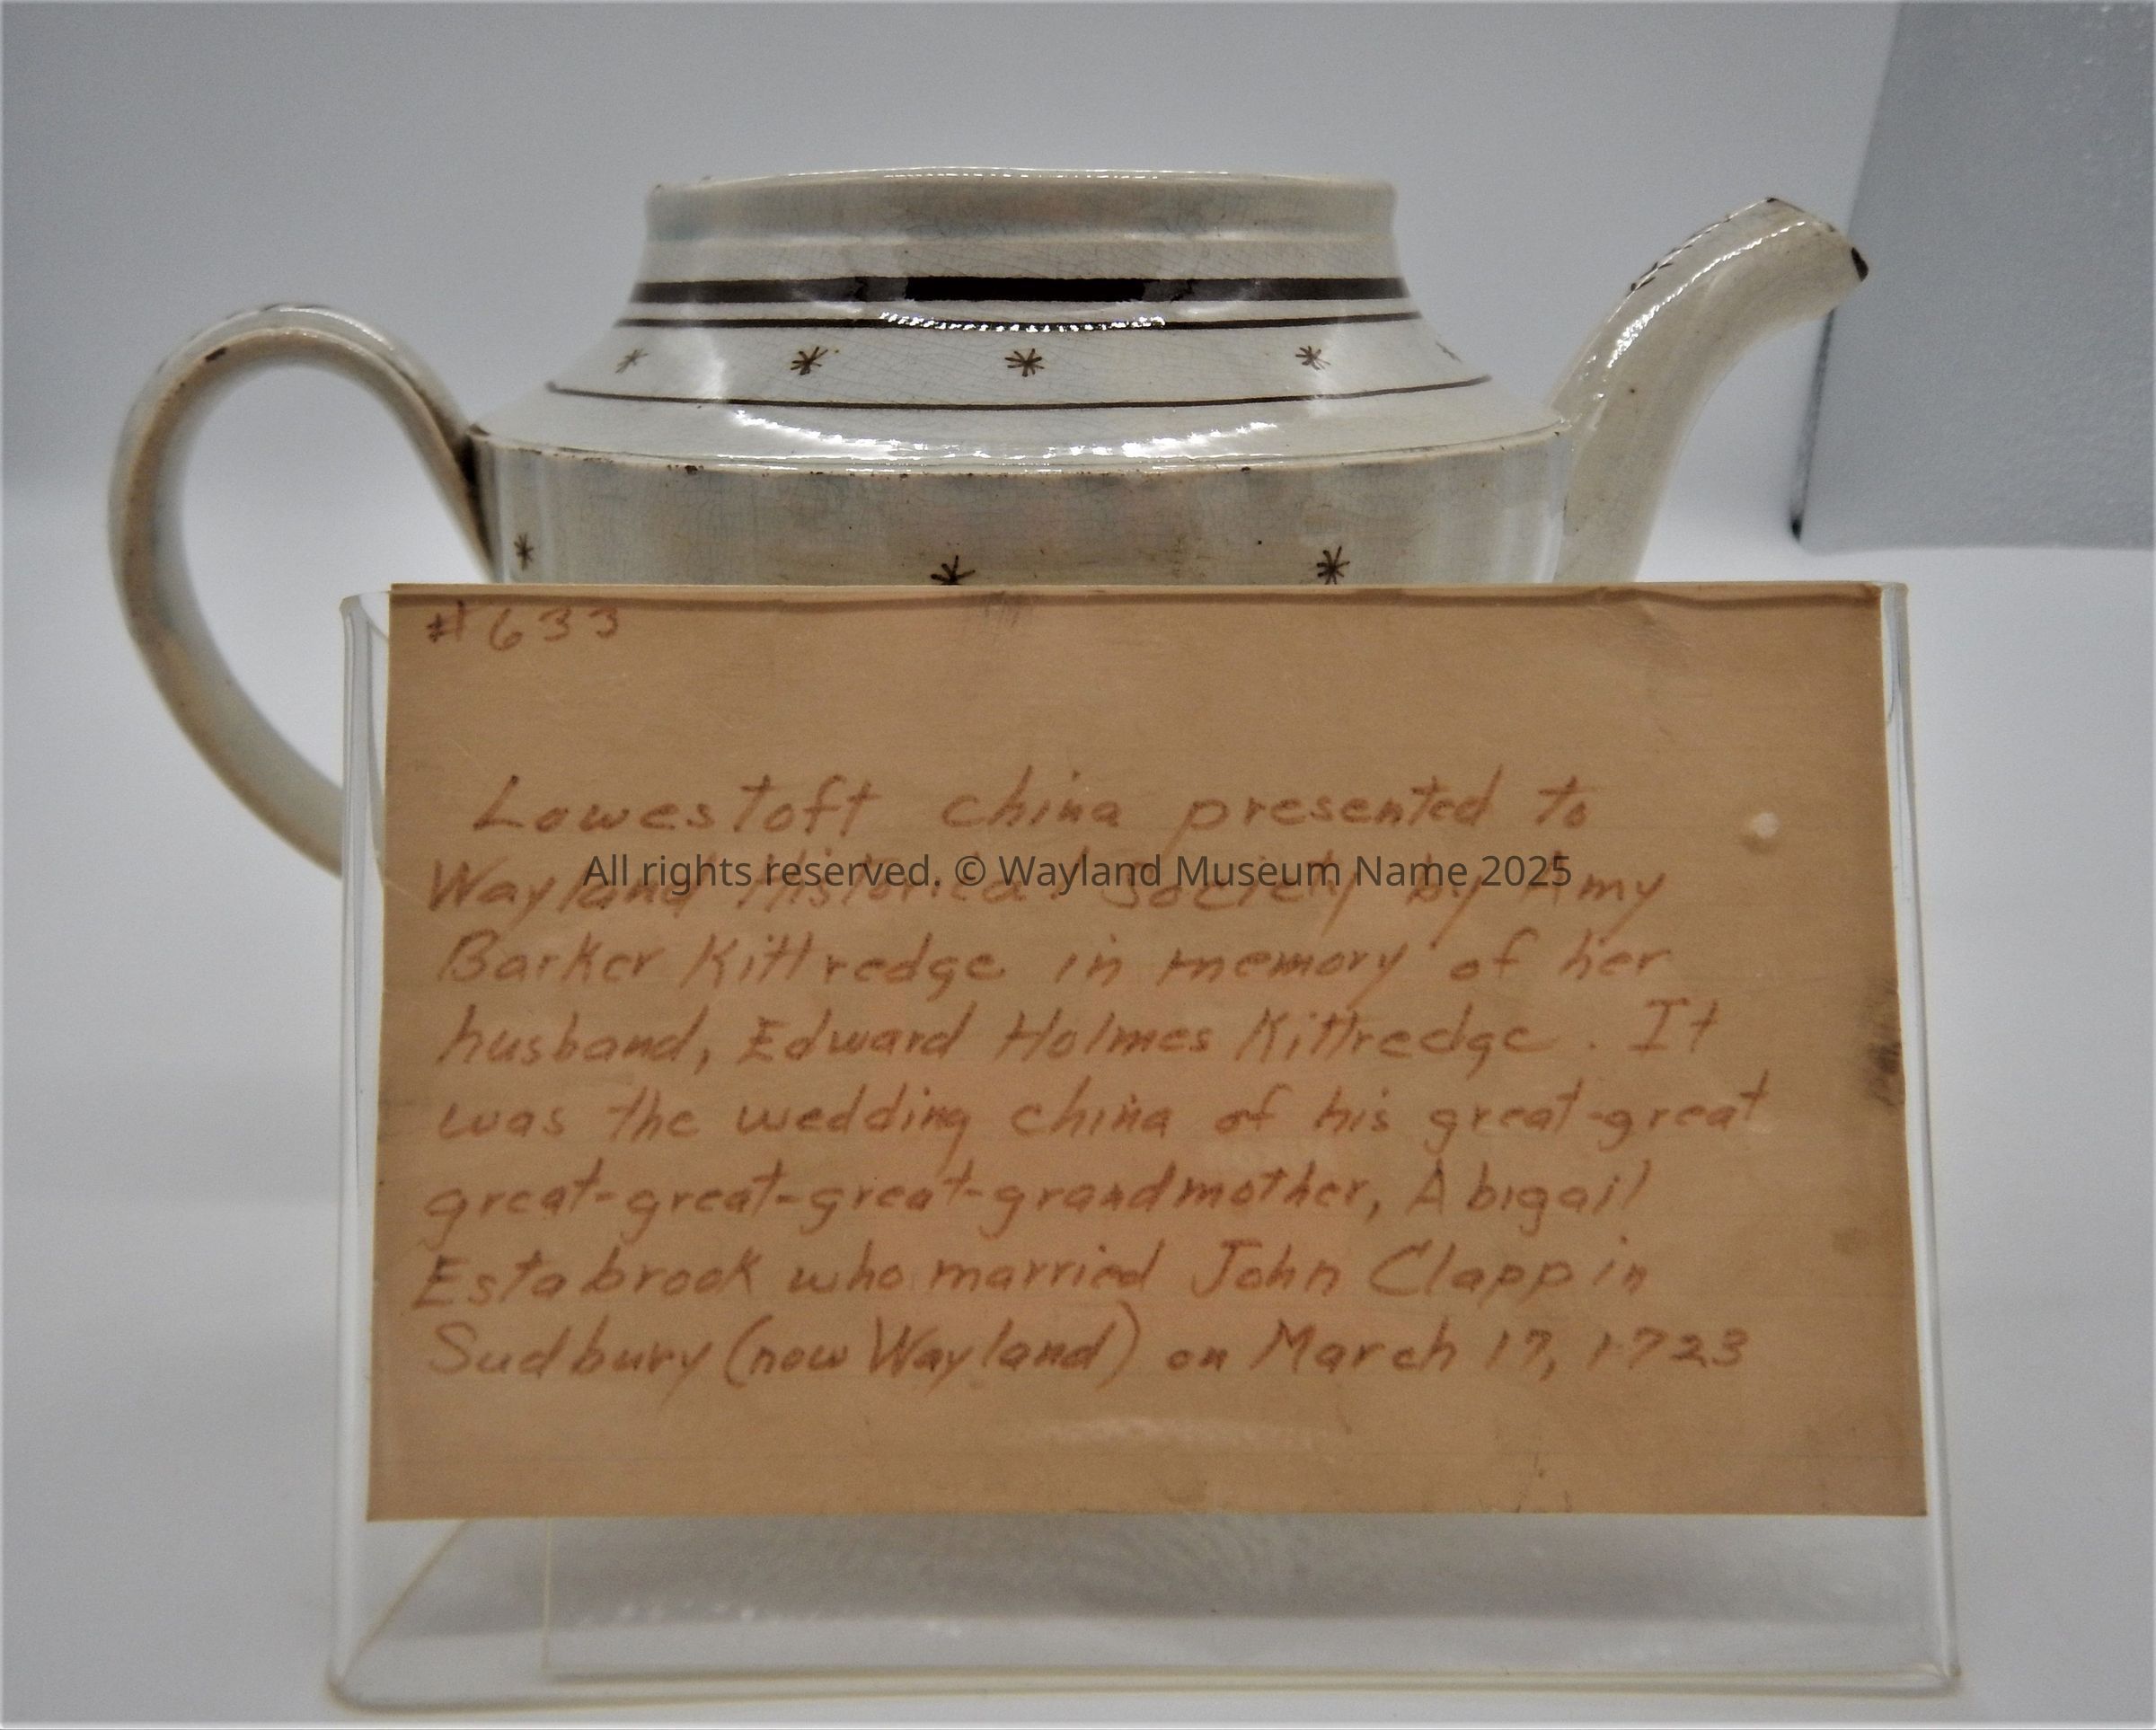 #633
Lowestoft china presented to
Wayland Historical Society by Amy
All rights reserved. © Wayland Museum Name 2025
Barker Kittredge in memory of her
husband, Edward Holmes Kittredge. It
was the wedding china of his great-great
great-great-great-grandmother, Abigail
Estabrook who married John Clapp in
Sudbury (now Wayland) on March 17, 1723